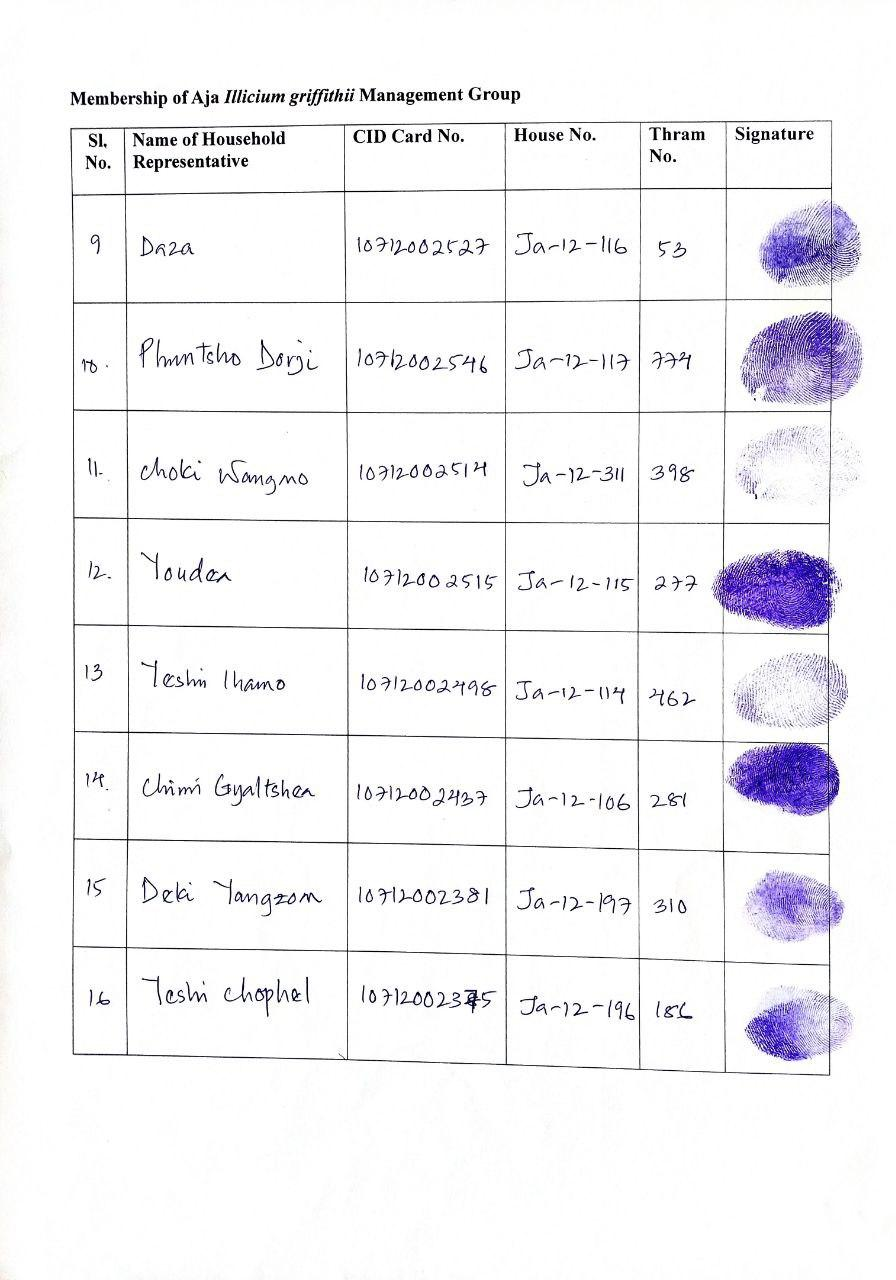 Membership of Aja Illicium griffithii Management Group
Sl. No. Name of Household Representative CID Card No. House No. Thram No. Signature
9 Daza 10712002527 Ja-12-116 53
10. Phuntsho Dorji 10712002546 Ja-12-117 774
11. Choki Wangmo 10712002514 Ja-12-311 398
12. Youden 10712002515 Ja-12-115 277
13 Yeshi lhamo 10712002498 Ja-12-114 462
14. Chimi Gyaltshen 10712002437 Ja-12-106 281
15 Deki Yangzom 10712002381 Ja-12-197 310
16 Yeshi Chophel Ja-12-196 186